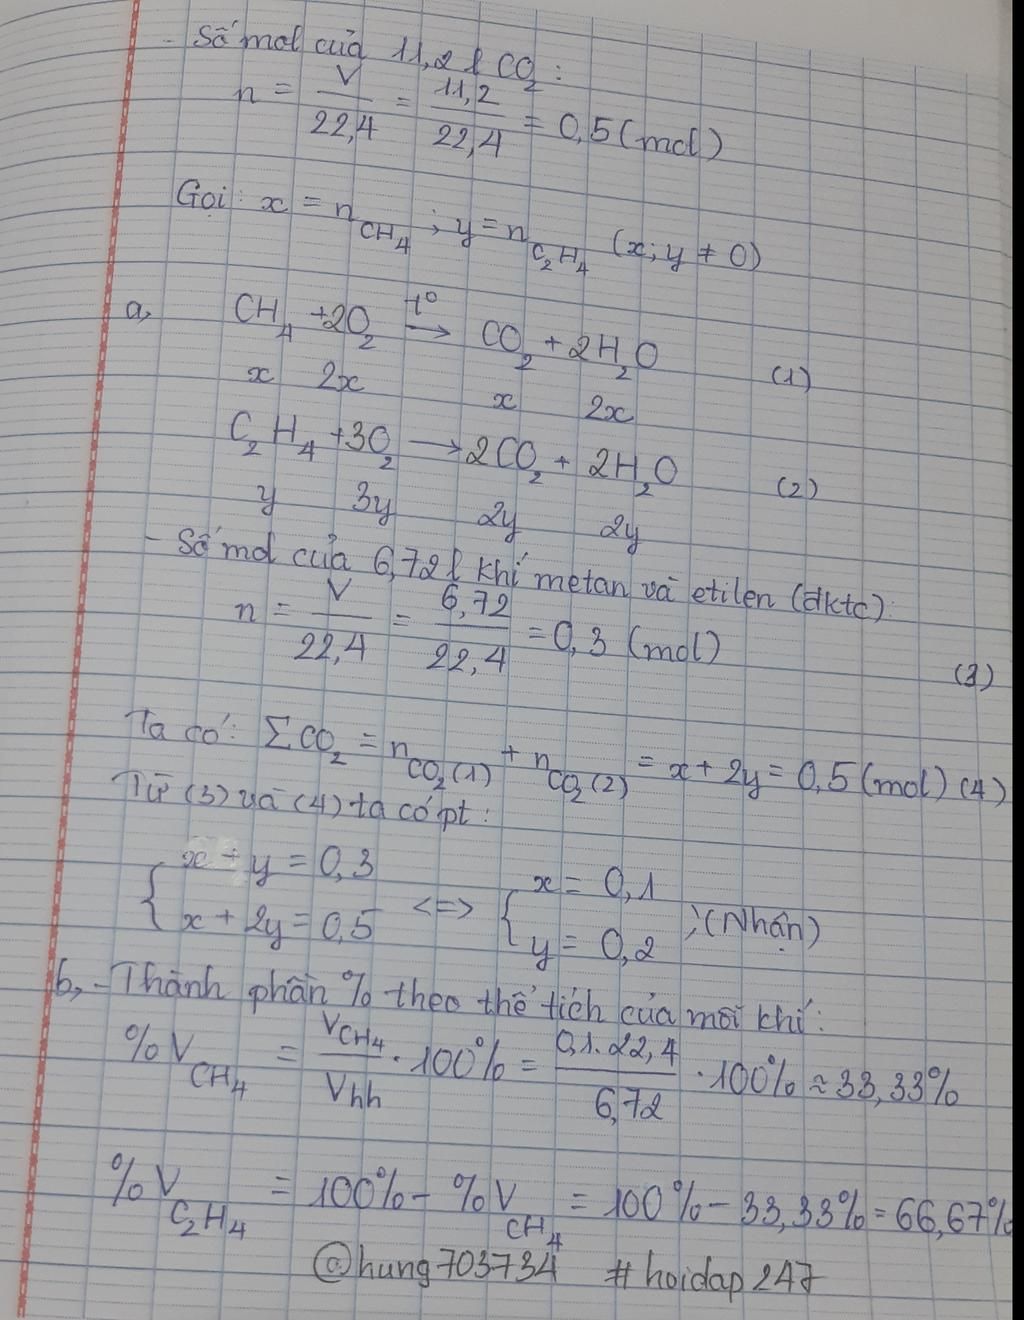 - Số mol của 11,2 l CO₂ :
n = V/22,4 = 11,2/22,4 = 0,5 (mol)
Gọi : x = n CH₄ ; y = n C₂H₄ (x; y ≠ 0)
a, CH₄ + 2O₂ →(t°) CO₂ + 2H₂O (1)
x 2x x 2x
C₂H₄ + 3O₂ → 2CO₂ + 2H₂O (2)
y 3y 2y 2y
- Số mol của 6,72 l khí metan và etilen (đktc):
n = V/22,4 = 6,72/22,4 = 0,3 (mol) (3)
Ta có : ΣCO₂ = n CO₂ (1) + n CO₂ (2) = x + 2y = 0,5 (mol) (4)
Từ (3) và (4) ta có pt :
{ x + y = 0,3
x + 2y = 0,5 <=> { x = 0,1
y = 0,2 ; (Nhận)
b, - Thành phần % theo thể tích của mỗi khí :
%V CH₄ = V CH₄/Vhh . 100% = 0,1.22,4/6,72 . 100% ≈ 33,33%
%V C₂H₄ = 100% - %V CH₄ = 100% - 33,33% = 66,67%
@hung703734 #hoidap247